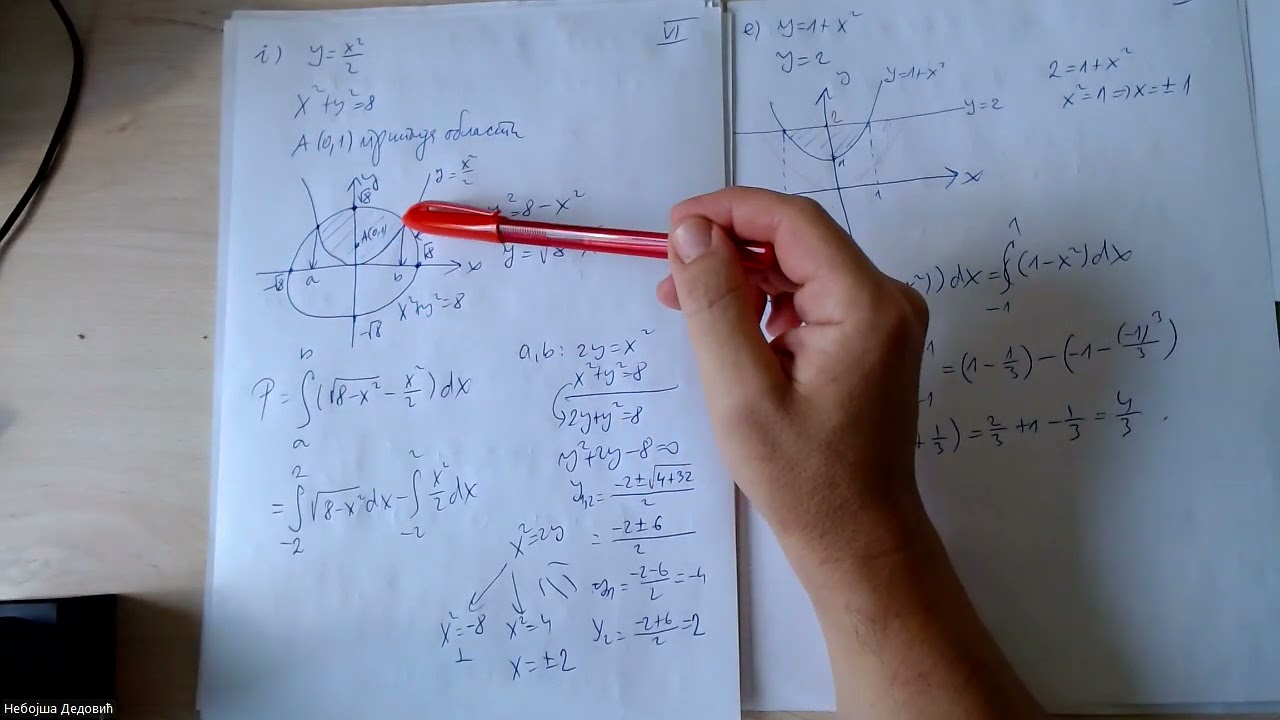 i) y = x²/2
x² + y² = 8
A(0,1) припада области
y = x²/2
y
√8
A(0,1)
-√8 a b √8 x
x² + y² = 8
-√8
y² = 8 - x²
y = √8
P = ∫ₐᵇ (√(8-x²) - x²/2) dx
= ∫₋₂² √(8-x²) dx - ∫₋₂² x²/2 dx
a,b: 2y = x²
x² + y² = 8
2y + y² = 8
y² + 2y - 8 = 0
y₁,₂ = (-2 ± √(4+32))/2
= (-2 ± 6)/2
y₁ = (-2-6)/2 = -4
y₂ = (-2+6)/2 = 2
x² = 2y
x² = -8 x² = 4
⊥ x = ±2
VI
e) y = 1 + x²
y = 2
y y = 1 + x²
2 y = 2
1
1 x
2 = 1 + x²
x² = 1 => x = ±1
)) dx = ∫₋₁¹ (1 - x²) dx
= (1 - 1/3) - (-1 - (-1)³/3)
+ 1/3) = 2/3 + 1 - 1/3 = 4/3 .
Небојша Дедовић